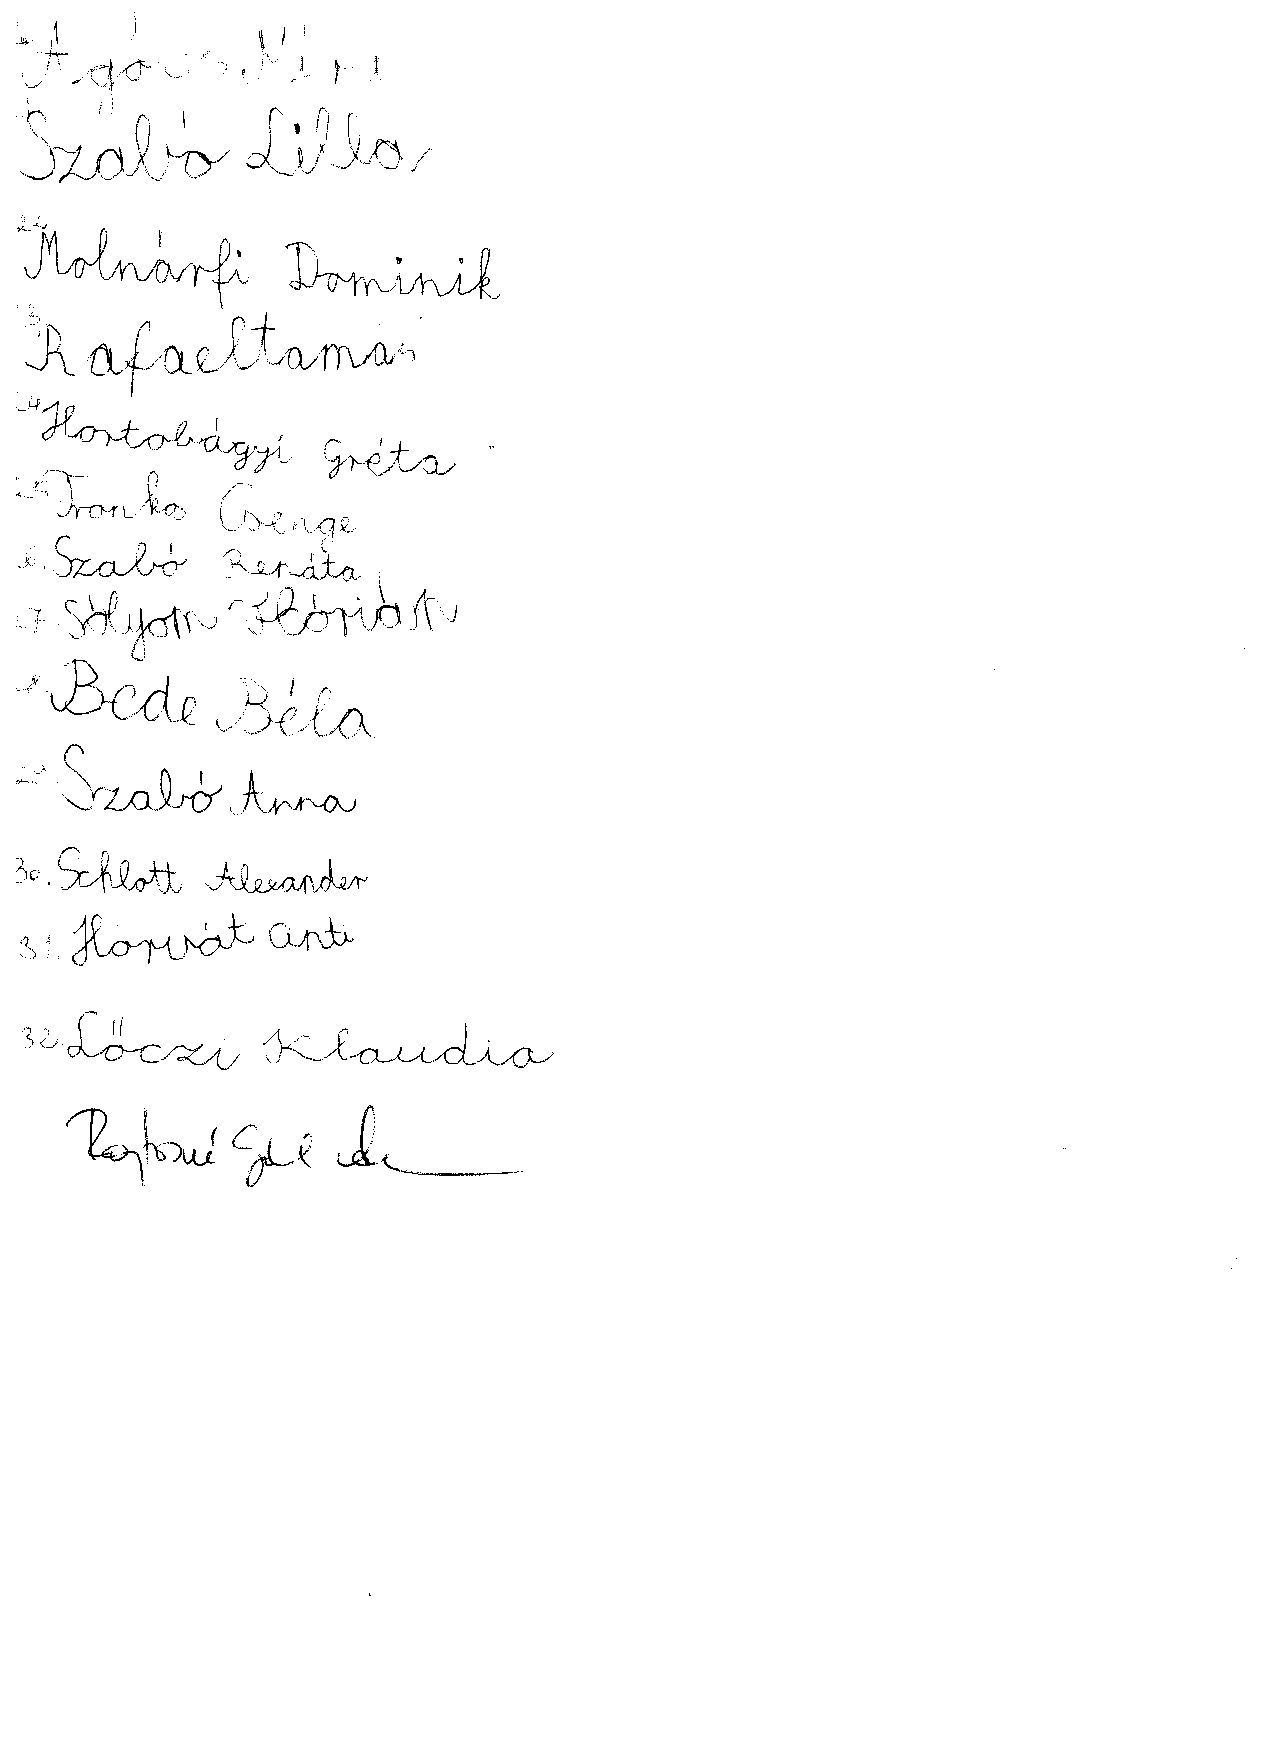 Szabó Lilla
22. Molnárfi Dominik
23. Rafaeltamás
24. Hortobágyi Gréta
25. Franka Csenge
26. Szabó Renáta
27. Sólyom Flórián
28. Bede Béla
29. Szabó Anna
30. Schlott Alexander
31. Horvát Anti
32. Lőczi Klaudia